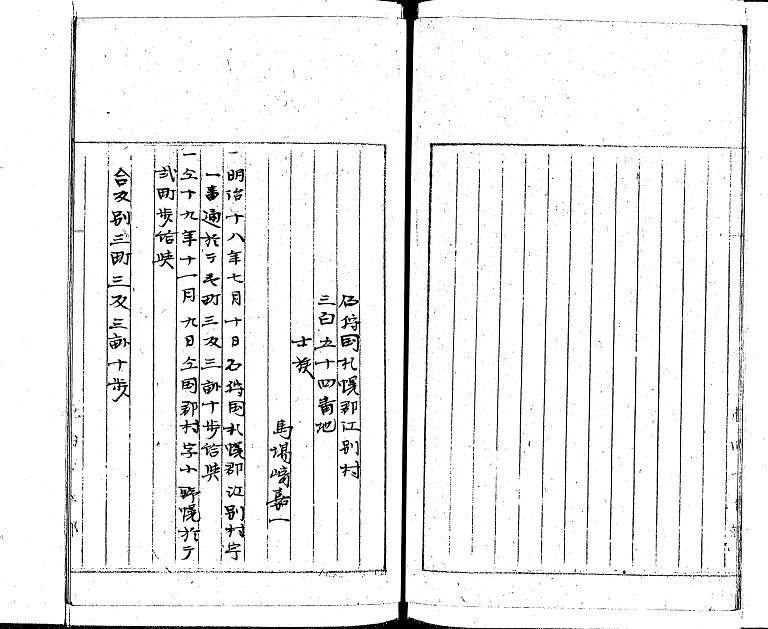 石狩国札幌郡江別村
三百五十四番地
士族
馬場崎嘉一
一明治十八年七月十日石狩国札幌郡江別村字
一番通於テ壱町三反三畝十歩給与
一仝十九年十一月九日仝国郡村字小野幌於テ
弐町歩給与
合反別三町三反三畝十歩